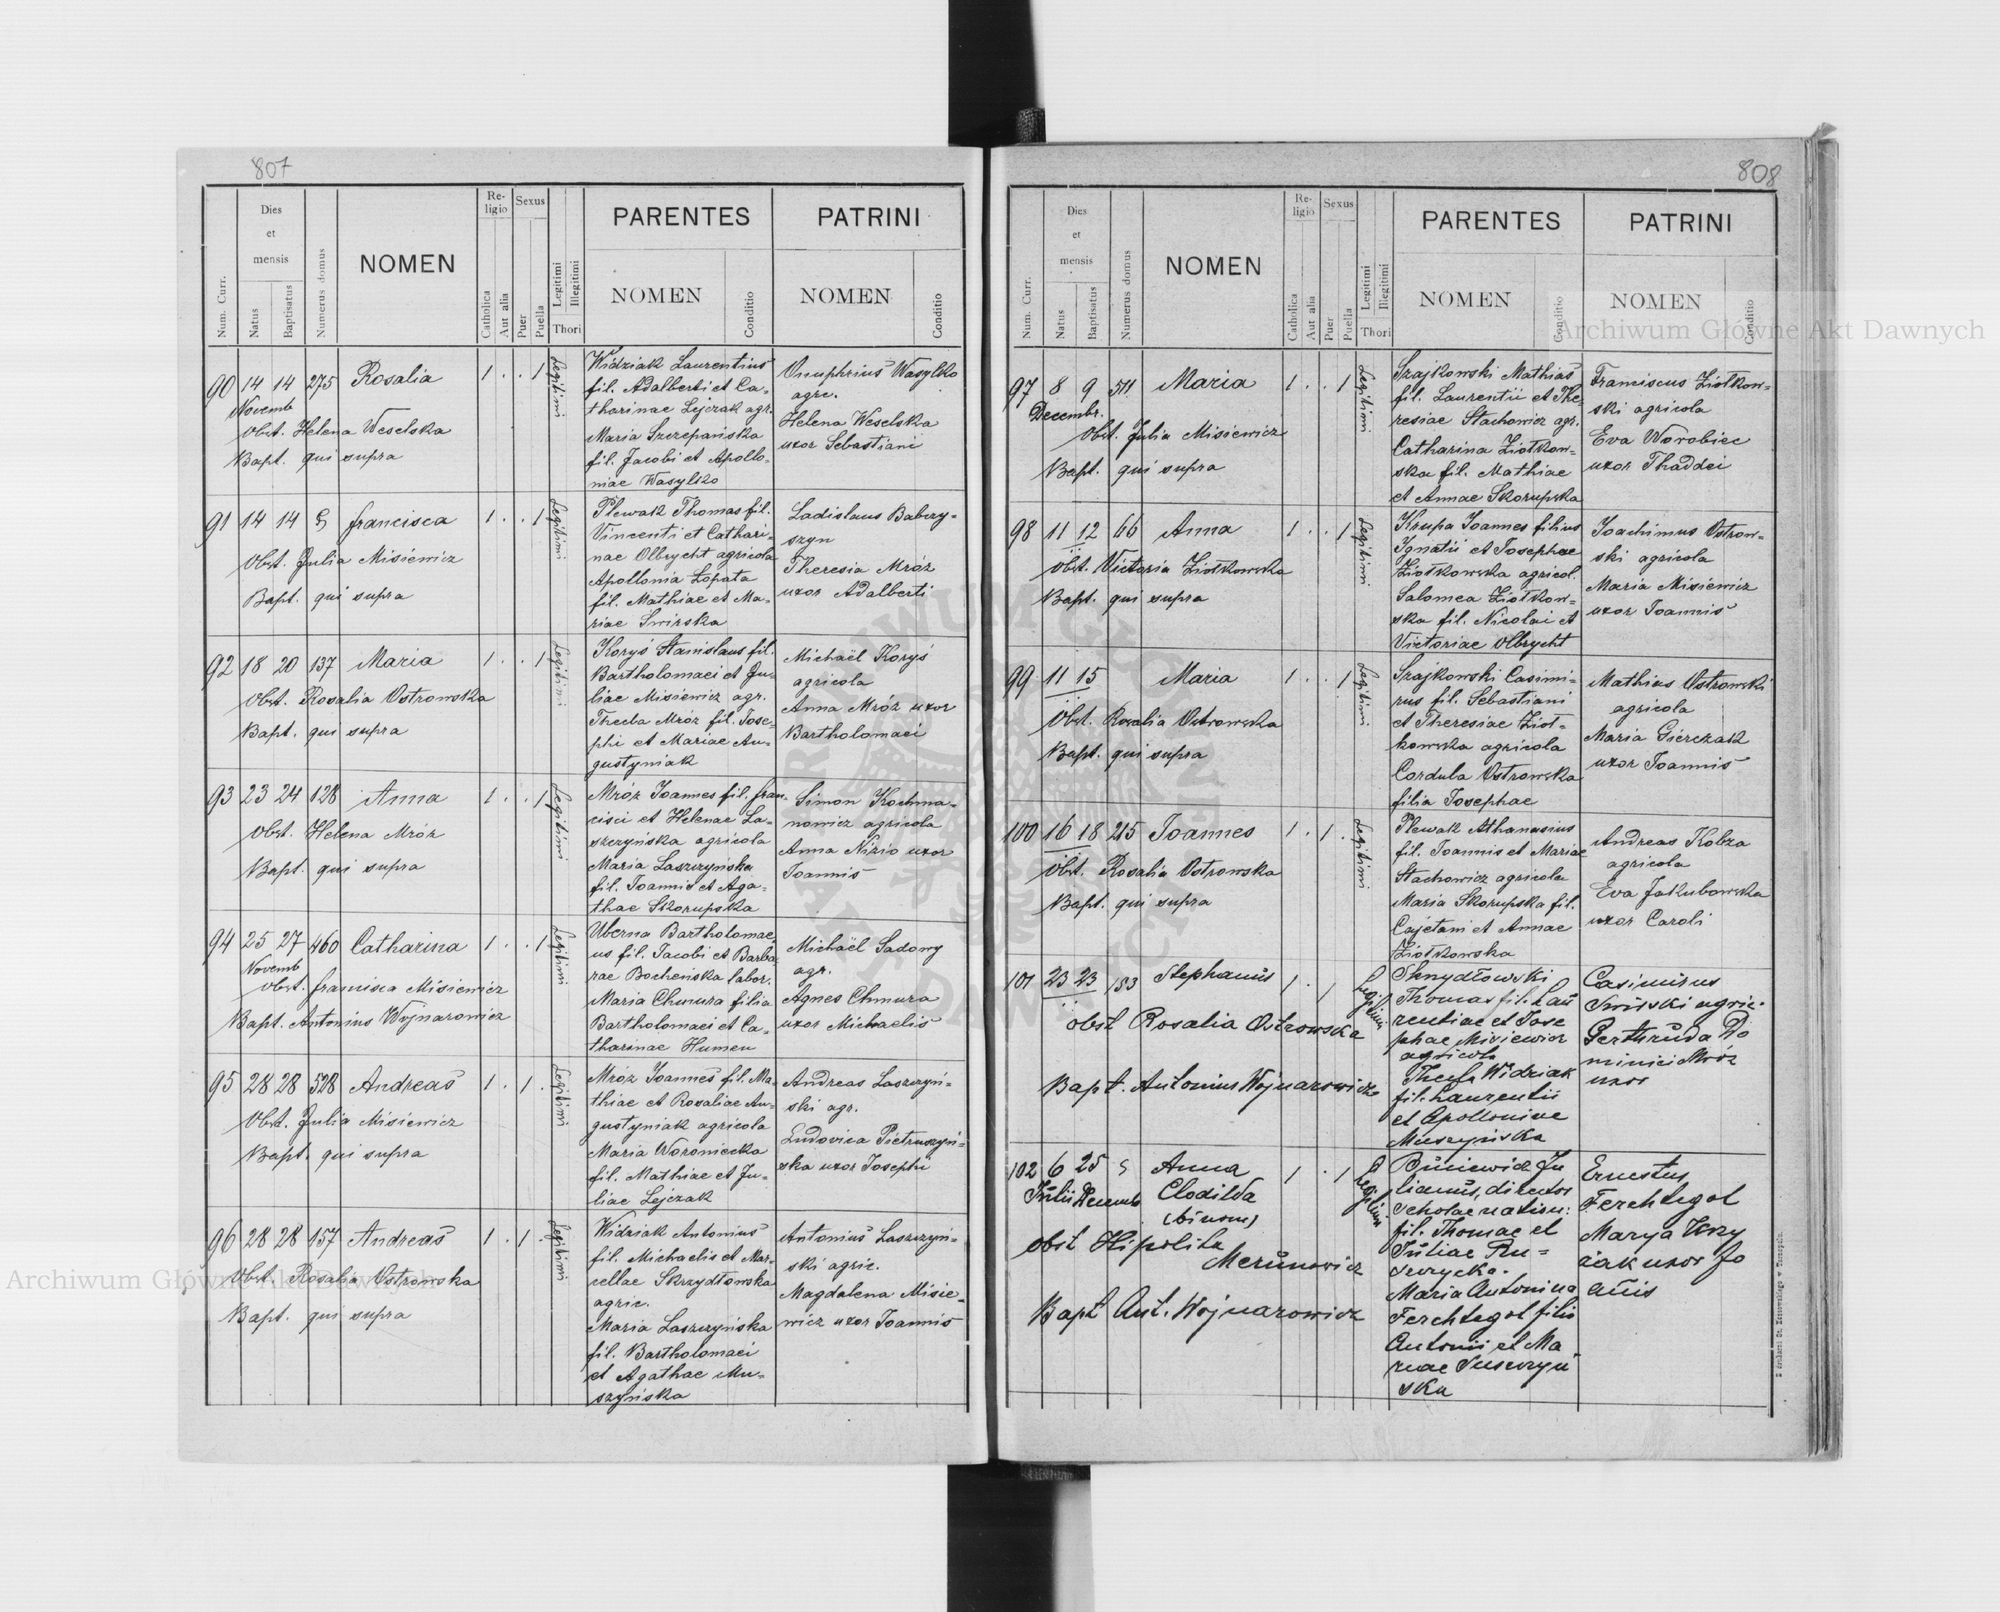 807
Dies
et
mensis
Re-
ligio
Sexus
PARENTES
PATRINI
Num. Curr.
Natus
Baptisatus
Numerus domus
NOMEN
Catholica
Aut alia
Puer
Puella
Legitimi
Illegitimi
Thori
NOMEN
Conditio
NOMEN
Conditio
90 14 14 275 Rosalia 1 . . 1 Legitimi
Novemb
Obst. Helena Weselska
Bapt. qui supra
Widziak Laurentius
fil. Adalberti et Ca-
tharinae Lejczak agr.
Maria Szczepańska
fil. Jacobi et Apollo-
niae Wasylko
Onuphrius Wasylko
agrc.
Helena Weselska
uxor Sebastiani
91 14 14 Francisca 1 . . 1 Legitimi
Obst. Julia Misiewicz
Bapt. qui supra
Plewak Thomas fil.
Vincenti et Cathari-
nae Olbrycht agricola
Apollonia Łopata
fil. Mathiae et Ma-
riae Swirska
Ladislaus Babczy-
szyn
Theresia Mróz
uxor Adalberti
92 18 20 137 Maria 1 . . 1 Legitimi
Obst. Rosalia Ostrowska
Bapt. qui supra
Koryś Stanislaus fil.
Bartholomaei et Ju-
liae Misiewicz agr.
Thecla Mróz fil. Jose-
phi et Mariae Au-
gustyniak
Michaël Koryś
agricola
Anna Mróz uxor
Bartholomaei
93 23 24 128 Anna 1 . . 1 Legitimi
Obst. Helena Mróz
Bapt. qui supra
Mróz Joannes fil. Fran-
cisci et Helenae La-
szczyńska agricola
Maria Laszczyńska
fil. Joannis et Aga-
thae Skorupska
Simon Kochma-
nowicz agricola
Anna Nizio uxor
Joannis
94 25 27 460 Catharina 1 . . 1 Legitimi
Novemb
Obst. Francisca Misiewicz
Bapt. Antonius Wojnarowicz
Uberna Bartholomae-
us fil. Jacobi et Barba-
rae Bocheńska labor.
Maria Chmura filia
Bartholomaei et Ca-
tharinae Humen
Michaël Sadowy
agr.
Agnes Chmura
uxor Michaelis
95 28 28 528 Andreas 1 . 1 . Legitimi
Obst. Julia Misiewicz
Bapt. qui supra
Mróz Joannes fil. Ma-
thiae et Rosaliae Au-
gustyniak agricola
Maria Woroniecka
fil. Mathiae et Ju-
liae Lejczak
Andreas Laszczyń-
ski agr.
Ludovica Pietruszyń-
ska uxor Josephi
96 28 28 157 Andreas 1 . 1 . Legitimi
Obst. Rosalia Ostrowska
Bapt. qui supra
Widziak Antonius
fil. Michaelis et Mar-
cellae Skrzydłowska
agric.
Maria Laszczyńska
fil. Bartholomaei
et Agathae Mu-
szyńska
Antonius Laszczyń-
ski agric.
Magdalena Misie-
wicz uxor Joannis
808
Dies
et
mensis
Re-
ligio
Sexus
PARENTES
PATRINI
Num. Curr.
Natus
Baptisatus
Numerus domus
NOMEN
Catholica
Aut alia
Puer
Puella
Legitimi
Illegitimi
Thori
NOMEN
Conditio
NOMEN
Conditio
97 8 9 511 Maria 1 . . 1 Legitimi
Decembr.
Obst. Julia Misiewicz
Bapt. qui supra
Szajkowski Mathias
fil. Laurentii et The-
resiae Stachowicz agr.
Catharina Ziołkow-
ska fil. Mathiae
et Annae Skorupska
Franciscus Ziołkow-
ski agricola
Eva Worobiec
uxor Thaddei
98 11 12 66 Anna 1 . . 1 Legitimi
Obst. Victoria Ziołkowska
Bapt. qui supra
Krupa Joannes filius
Ignatii et Josephae
Ziołkowska agricol.
Salomea Ziołkow-
ska fil. Nicolai et
Victoriae Olbrycht
Joachimus Ostrow-
ski agricola
Maria Misiewicz
uxor Joannis
99 11 15 Maria 1 . . 1 Legitimi
Obst. Rosalia Ostrowska
Bapt. qui supra
Szajkowski Casimi-
rus fil. Sebastiani
et Theresiae Zioł-
kowska agricola
Cordula Ostrowska
filia Josephae
Mathias Ostrowski
agricola
Maria Gierczak
uxor Joannis
100 16 18 215 Joannes 1 . 1 . Legitimi
Obst. Rosalia Ostrowska
Bapt. qui supra
Plewak Athanasius
fil. Joannis et Mariae
Stachowicz agricola
Maria Skorupska fil.
Cajetani et Annae
Ziołkowska
Andreas Kobza
agricola
Eva Jakubowska
uxor Caroli
101 23 23 183 Stephanus 1 . 1 Legitimi
obst Rosalia Ostrowska
Bapt. Antonius Wojnarowicz
Skrydłowski
Thomas fil. Lau
rentiae et Jose
phae Misiewicz
agricola
Thecla Widziak
fil. Laurentii
et Apolloniae
Muszyńska
Casimirus
Swirski agric.
Gerthruda Do
minici Mróz
uxor
102 6 25 Anna 1 . 1 Legitimi
Julii Decemb Clodilda
(binom)
obst Hipolita
Merunowicz
Bapt Ant. Wojnarowicz
Buniewicz Ju
lianus, director
scholae nation:
fil. Thomae et
Juliae
Maria Antonina
Ferchtegot filia
Antonii et Ma
riae
ska
Ernestus
Ferchtegot
Marya
uxor Jo
anis
Archiwum Główne Akt Dawnych
Archiwum Główne Akt Dawnych